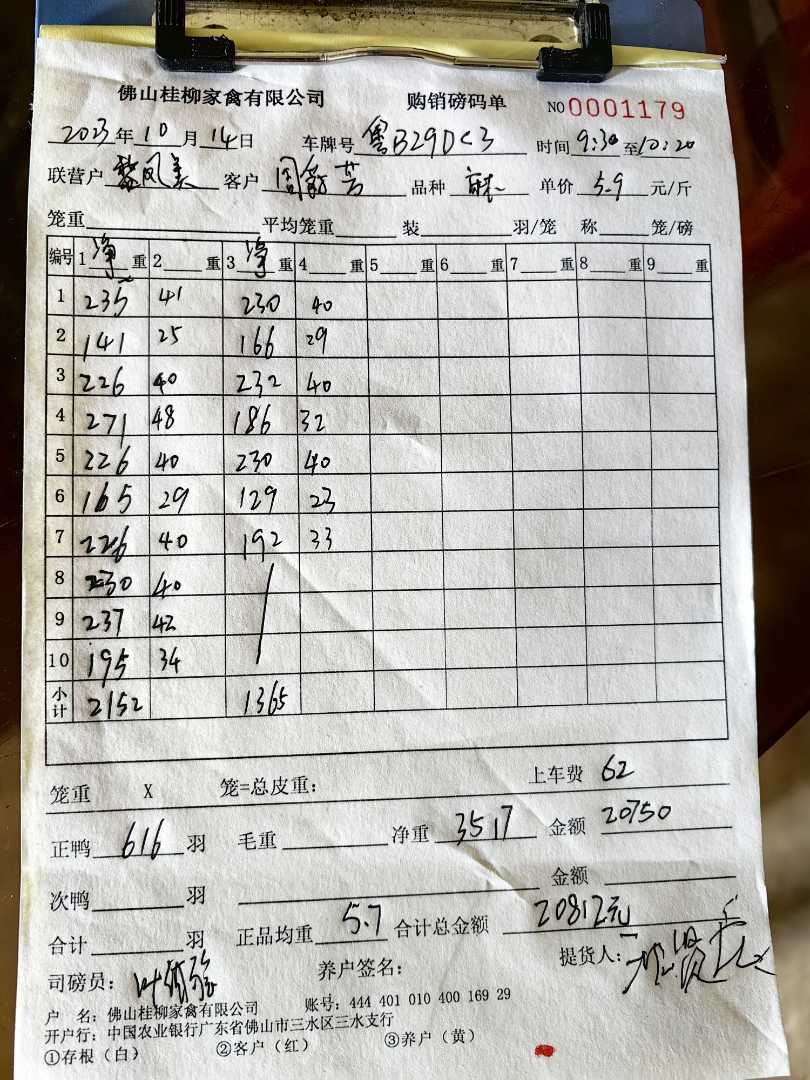 佛山桂柳家禽有限公司 购销磅码单 NO 0001179
2023年10月14日 车牌号 粤B29D<3 时间 9:30至10:20
联营户 凤美 客户 周 芳 品种 麻 单价 5.9 元/斤
笼重 平均笼重 装 羽/笼 称 笼/磅
编号 1 净 重 2 重 3 净 重 4 重 5 重 6 重 7 重 8 重 9 重
1 235 41 230 40
2 141 25 166 29
3 226 40 232 40
4 271 48 186 32
5 226 40 230 40
6 165 29 129 23
7 226 40 192 33
8 230 40
9 237 42
10 195 34
小计 2152 1365
笼重 X 笼=总皮重: 上车费 62
正鸭 616 羽 毛重 净重 3517 金额 20750
次鸭 羽 金额
合计 羽 正品均重 5.7 合计总金额 20812元
司磅员: 叶 养户签名: 提货人:
户 名: 佛山桂柳家禽有限公司 账号: 444 401 010 400 169 29
开户行: 中国农业银行广东省佛山市三水区三水支行
①存根（白） ②客户（红） ③养户（黄）